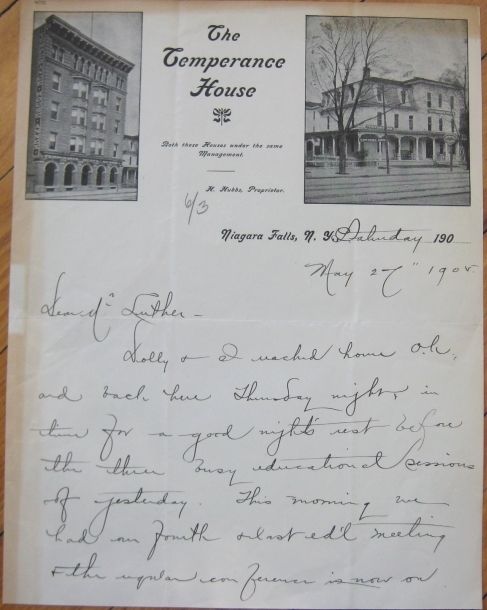 The
Temperance
House
Both these Houses under the same
Management.
H. Hubbs, Proprietor.
6/3
Niagara Falls, N. Y. Saturday 190
May 27" 1905.
Dear Mr Luther -
Dolly & I reached home O.K.
and back here Thursday night, in
time for a good night's rest before
the three busy educational sessions
of yesterday. This morning we
had our fourth & last ed'l meeting
& the regular conference is now on